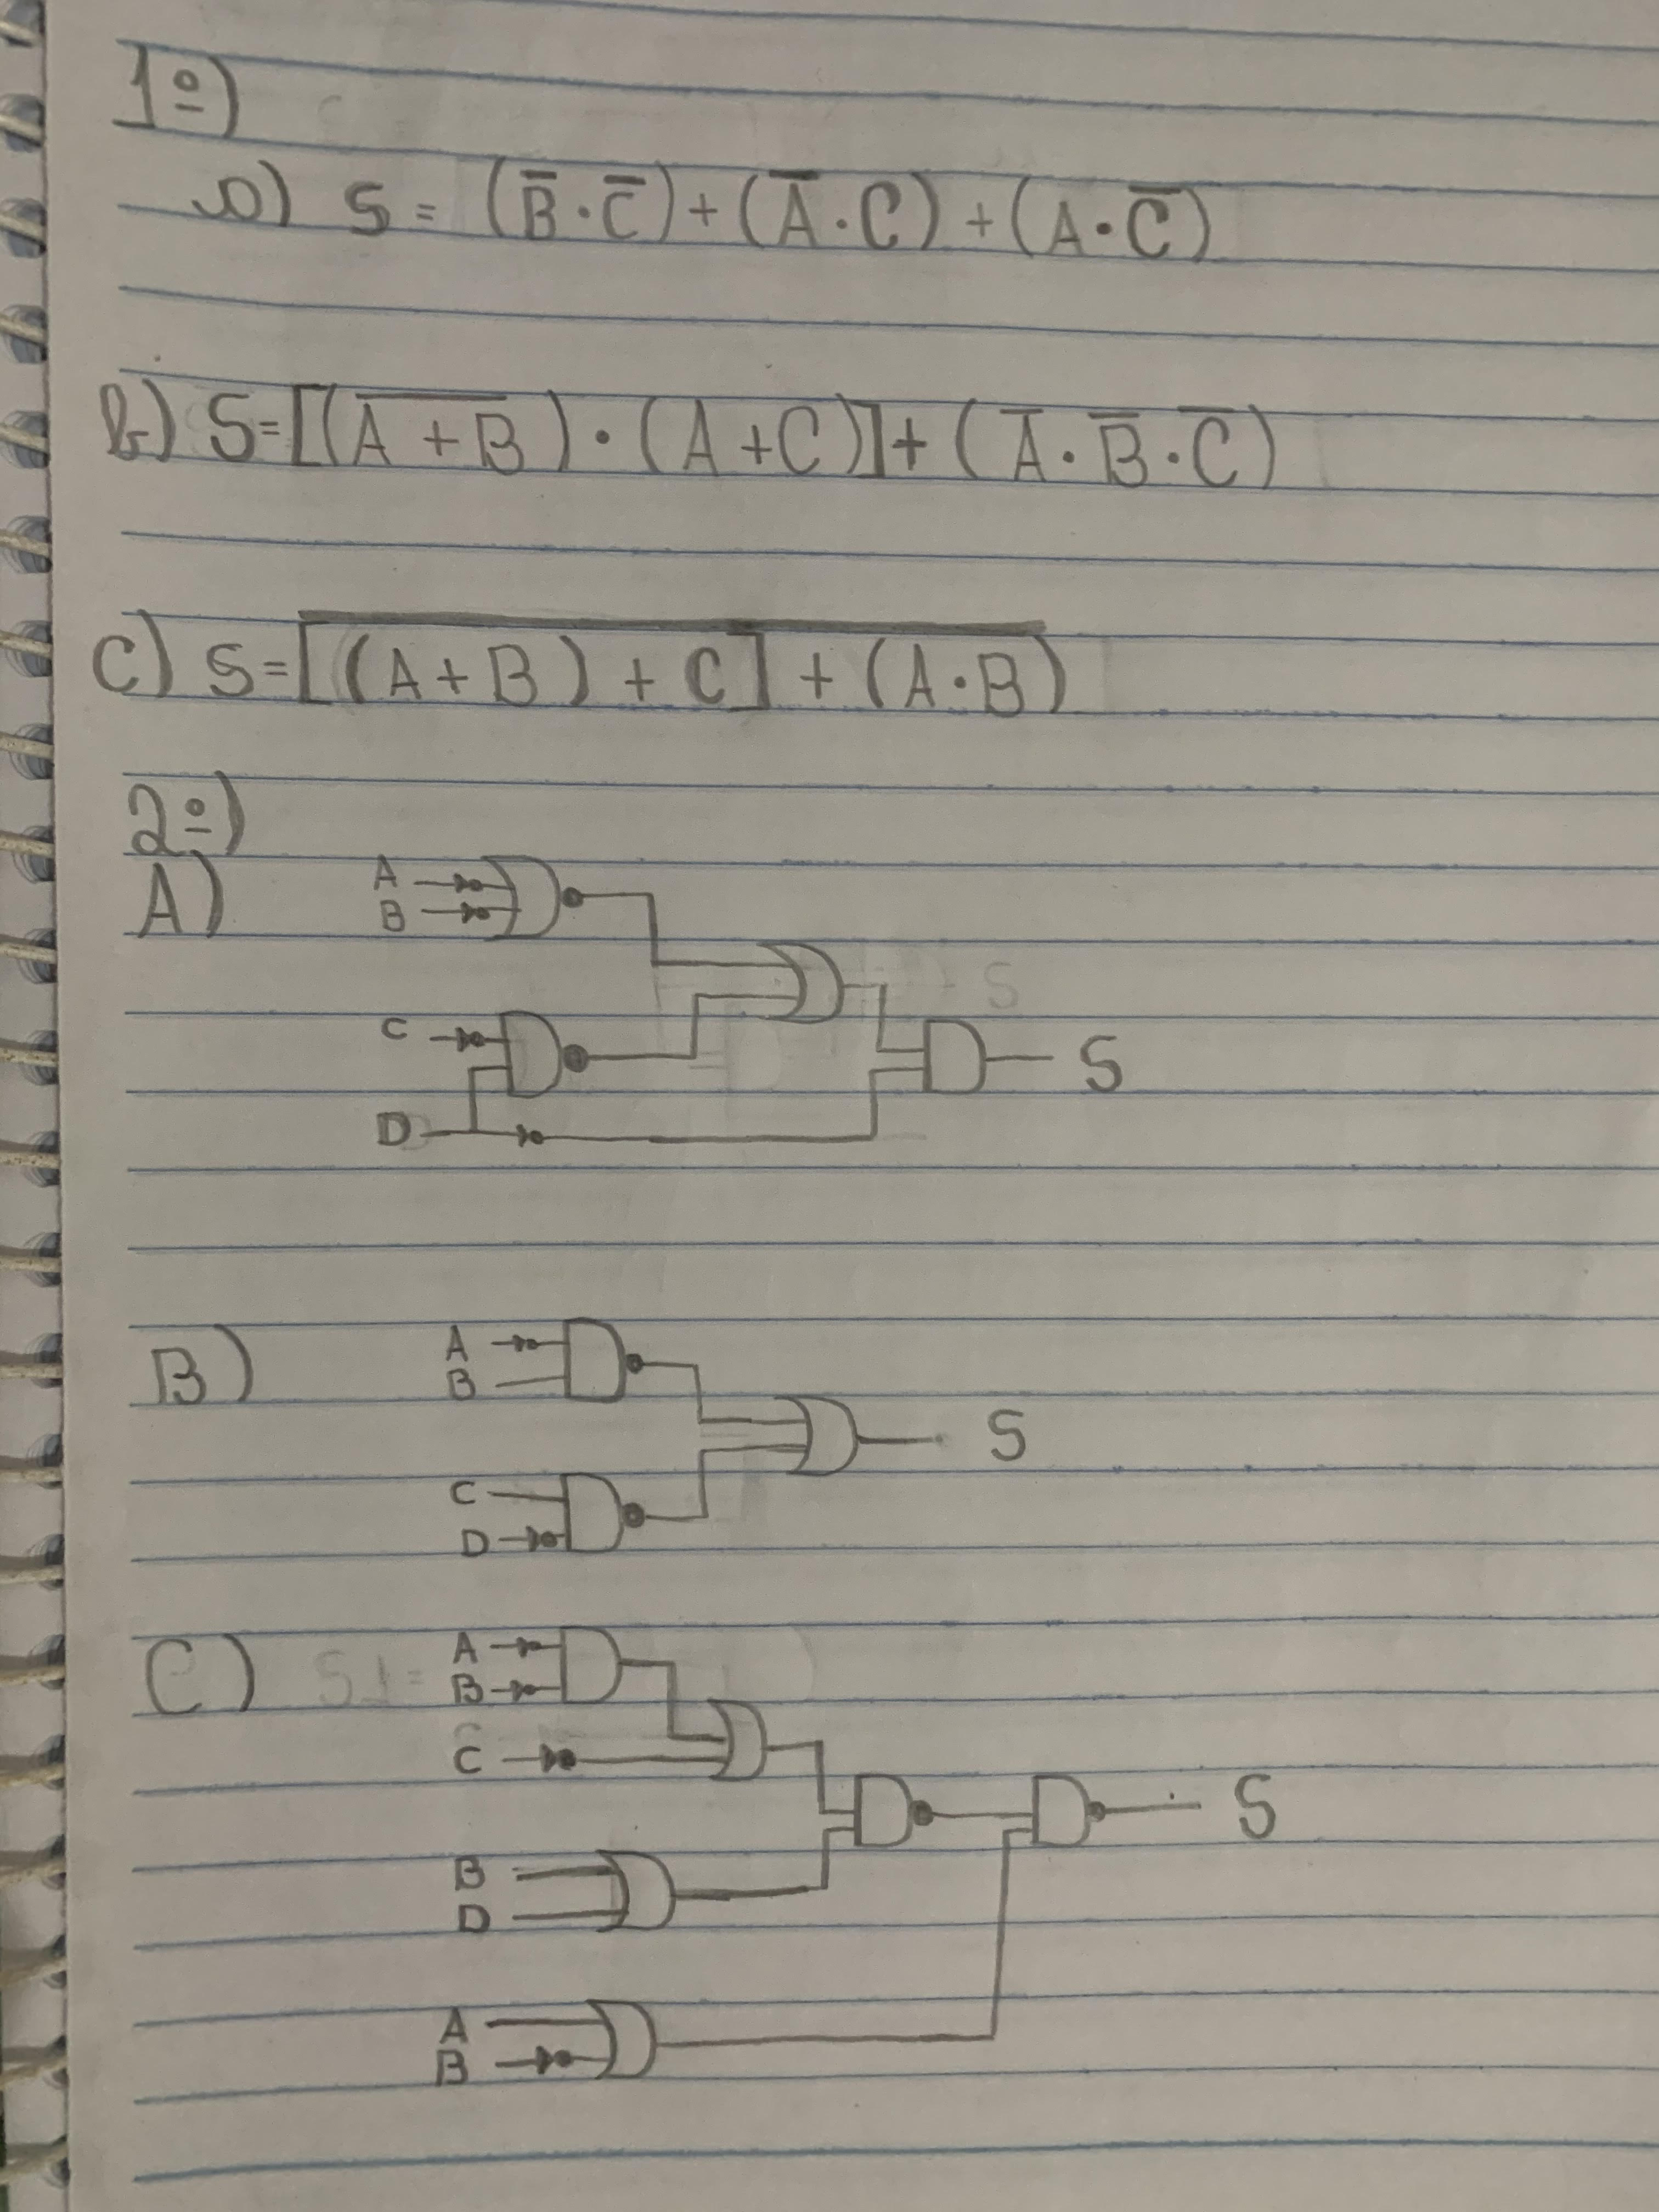 1º)
a) S = (B̅·C̅) + (A̅·C) + (A·C̅)
b) S=[(A̅ ̅+̅ ̅B̅)·(A+C)]+(A̅·B̅·C̅)
C) S=[̅(̅A̅+̅B̅)̅ ̅+̅ ̅C̅]̅ ̅+̅ ̅(̅A̅·̅B̅)̅
2º)
A) A
B
S
C
S
D
B) A
B
S
C
D
C) S1= A
B
C
S
B
D
A
B